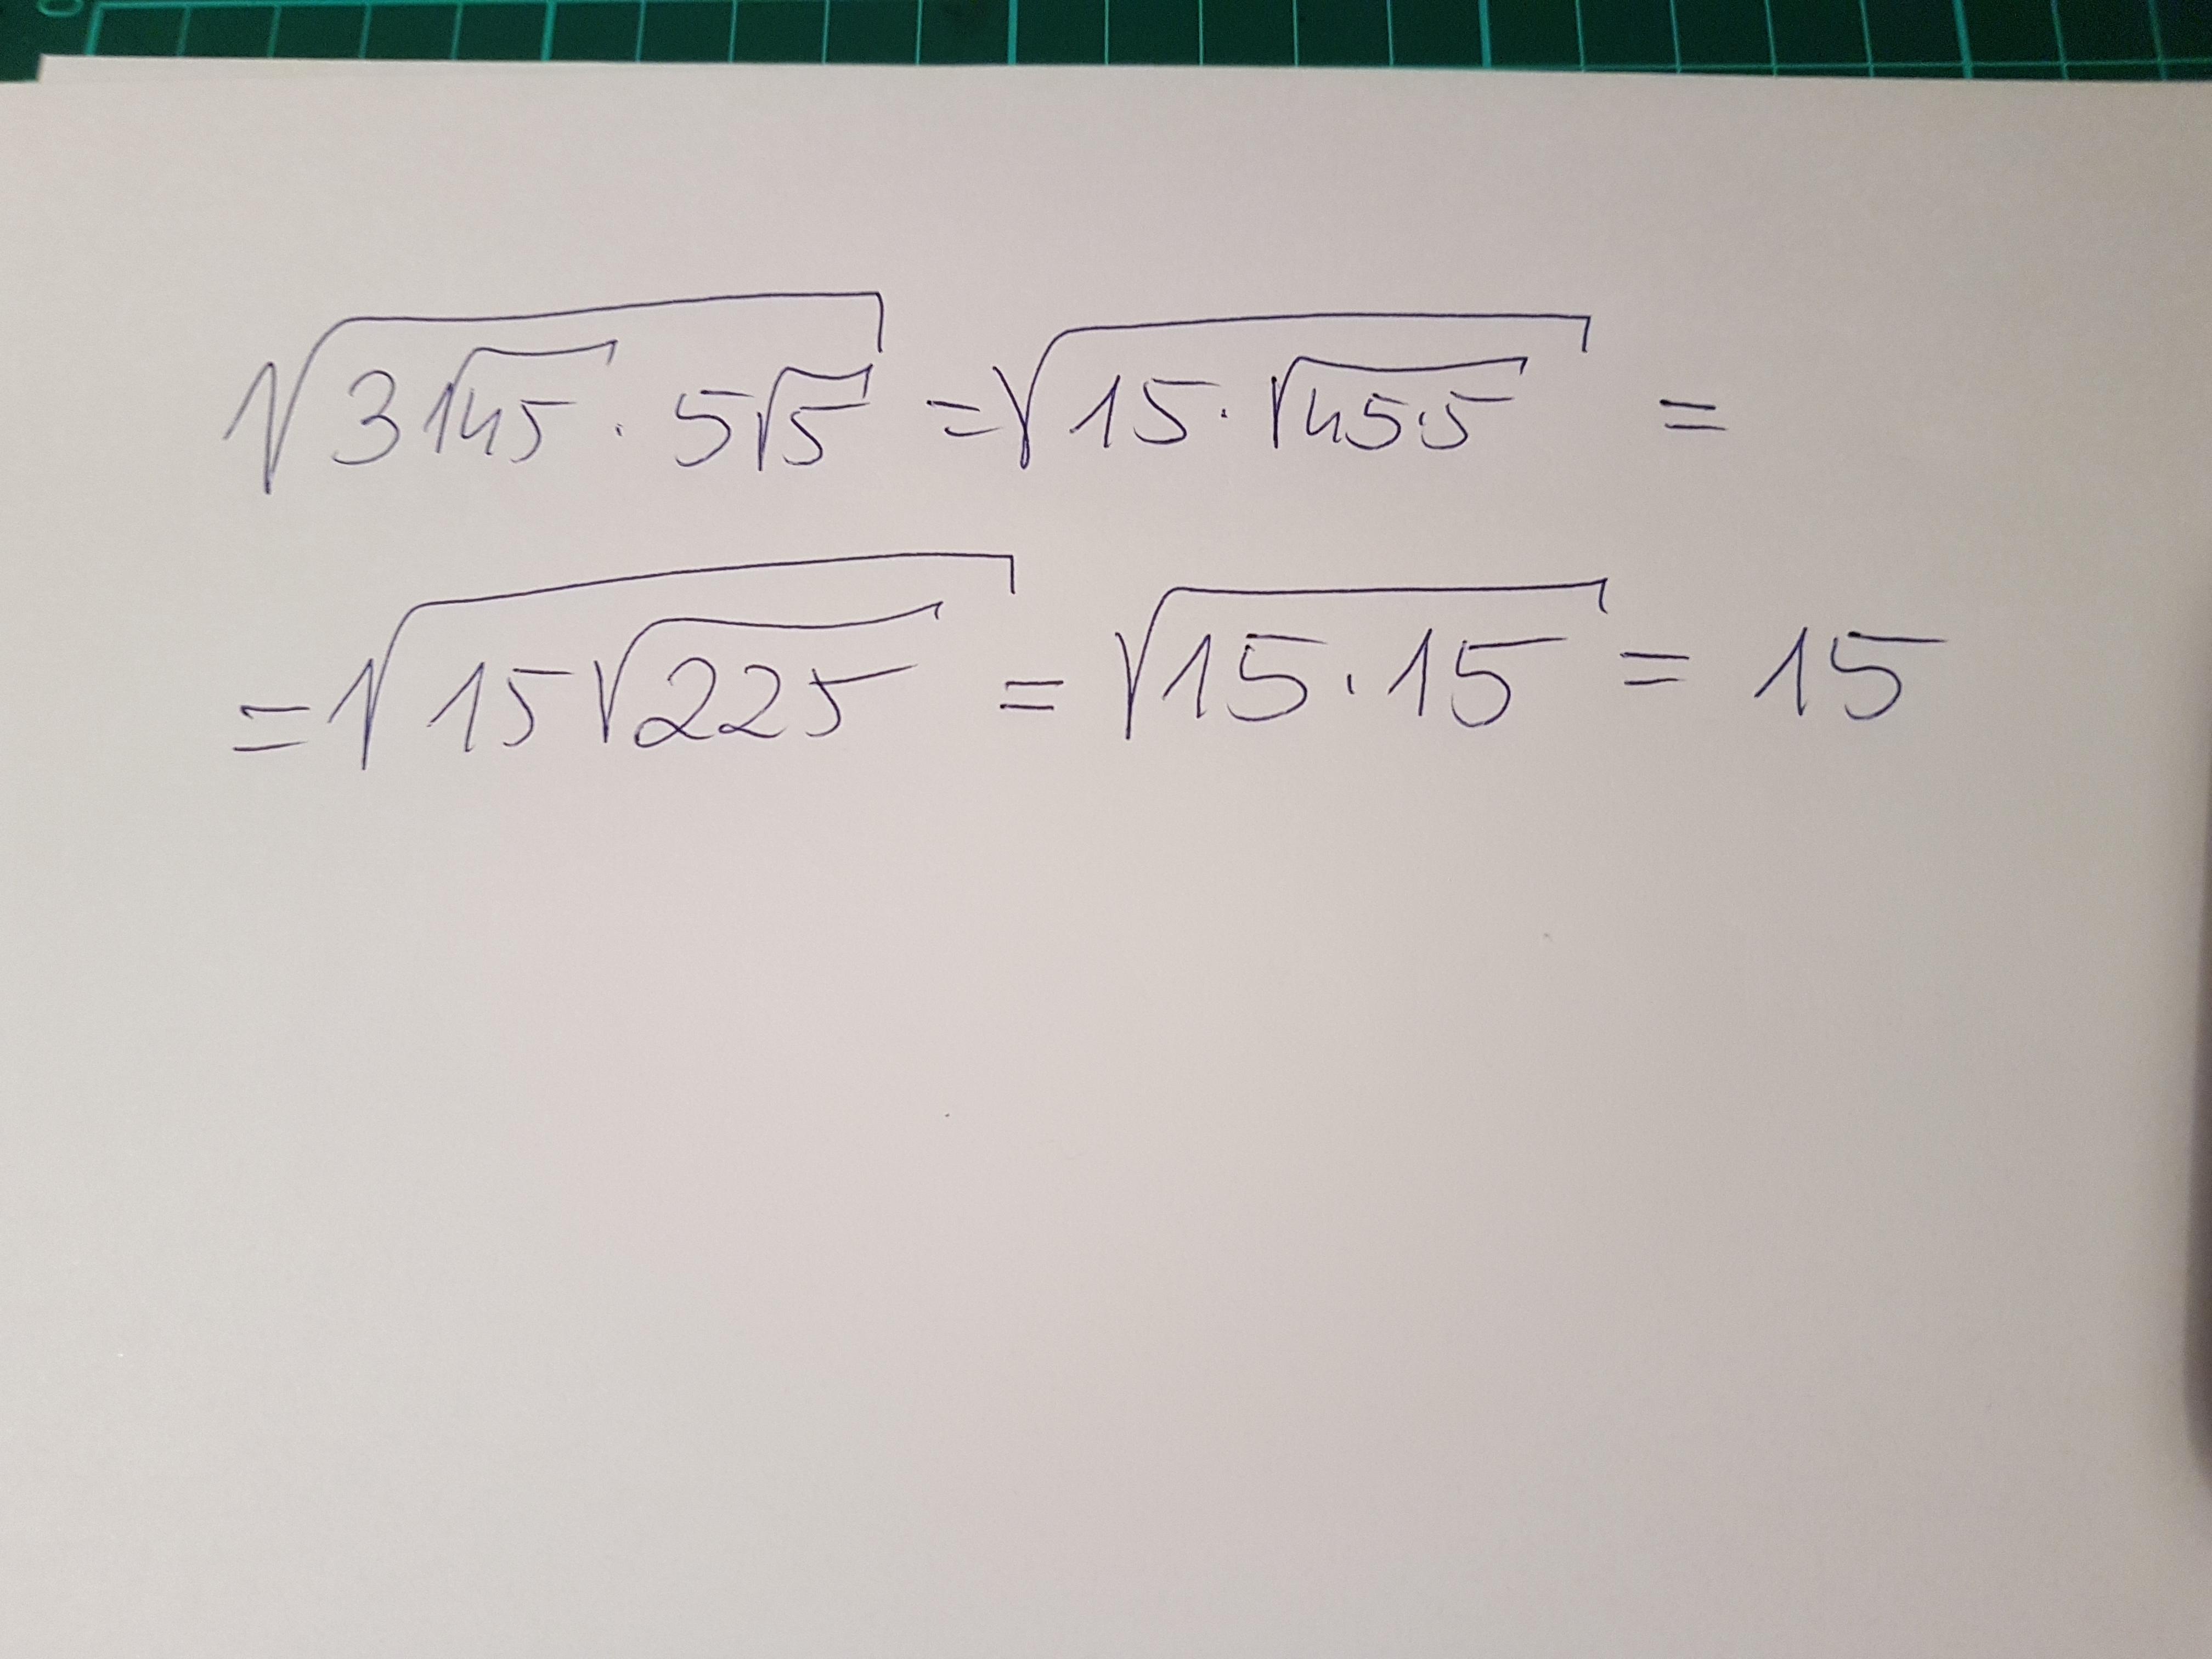 √(3√45 · 5√5) = √(15 · √(45·5)) =
= √(15√225) = √(15 · 15) = 15